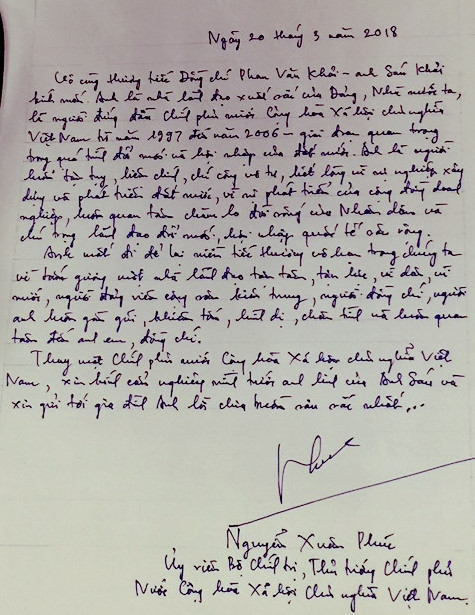 Ngày 20 tháng 3 năm 2018
Vô cùng thương tiếc Đồng chí Phan Văn Khải - anh Sáu Khải
kính mến. Anh là nhà lãnh đạo xuất sắc của Đảng, Nhà nước ta,
là người đứng đầu Chính phủ nước Cộng hòa Xã hội chủ nghĩa
Việt Nam từ năm 1997 đến năm 2006 - giai đoạn quan trọng
trong quá trình đổi mới và hội nhập của đất nước. Anh là người
luôn tận tụy, liêm chính, chí công vô tư, hết lòng vì sự nghiệp xây
dựng và phát triển đất nước, vì sự phát triển của cộng đồng doanh
nghiệp, luôn quan tâm chăm lo đời sống của Nhân dân và
chú trọng lãnh đạo đổi mới, hội nhập quốc tế sâu rộng.
Anh mất đi để lại niềm tiếc thương vô hạn trong chúng ta
về tấm gương một nhà lãnh đạo tận tâm, tận lực, vì dân, vì
nước, người đảng viên cộng sản kiên trung, người đồng chí, người
anh luôn gần gũi, khiêm tốn, bình dị, chân tình và luôn quan
tâm đến anh em, đồng chí.
Thay mặt Chính phủ nước Cộng hòa Xã hội chủ nghĩa Việt
Nam, xin kính cẩn nghiêng mình trước anh linh của Anh Sáu và
xin gửi tới gia đình Anh lời chia buồn sâu sắc nhất...
Phuc
Nguyễn Xuân Phúc
Ủy viên Bộ Chính trị, Thủ tướng Chính phủ
Nước Cộng hòa Xã hội Chủ nghĩa Việt Nam